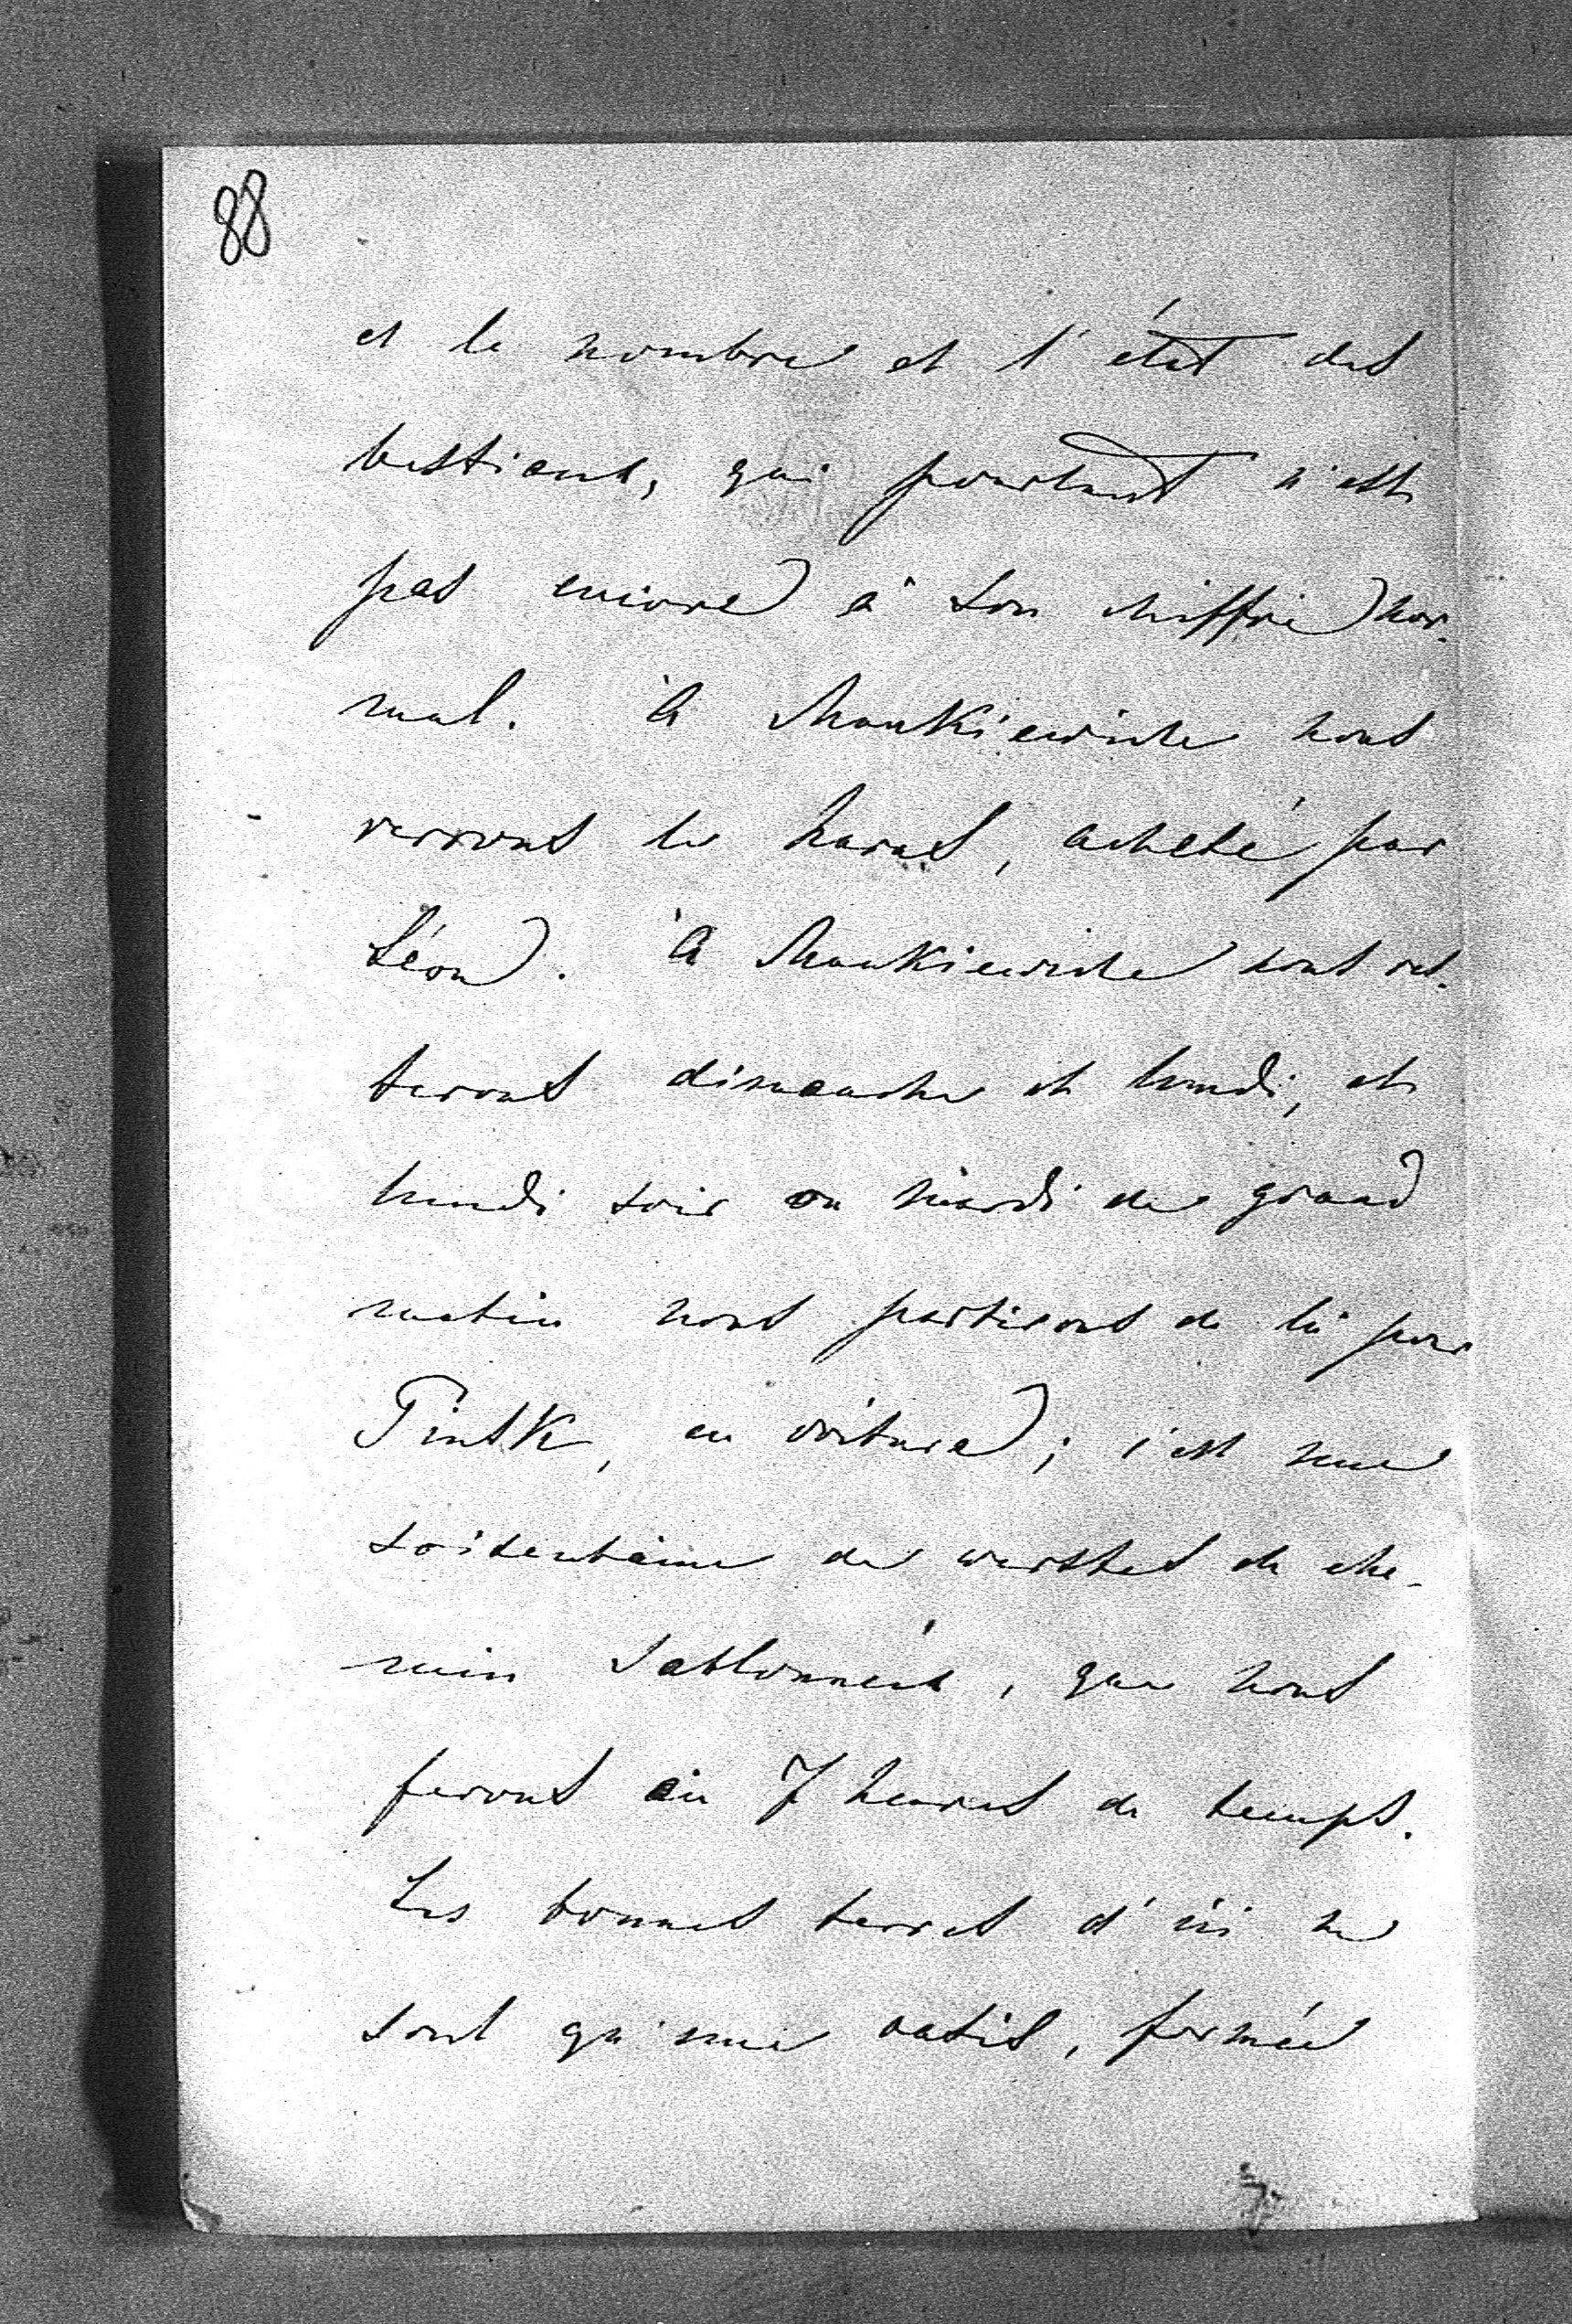 88
et le nombre et l'état des
bestiaux, qui pourtant n'est
pas encore à son chiffre nor-
mal. À Mankiewicze nous
verrons le haras, acheté par
Léon. À Mankiewicze nous res-
terons dimanche et lundi, et
lundi soir ou mardi de grand
matin nous partirons de là pour
Pinsk, en voiture; c'est une
soixantaine de werstes de che-
min sablonneux, que nous
ferons en 7 heures de temps.
Les bonnes terres d'ici ne
sont qu'une oasis, formée